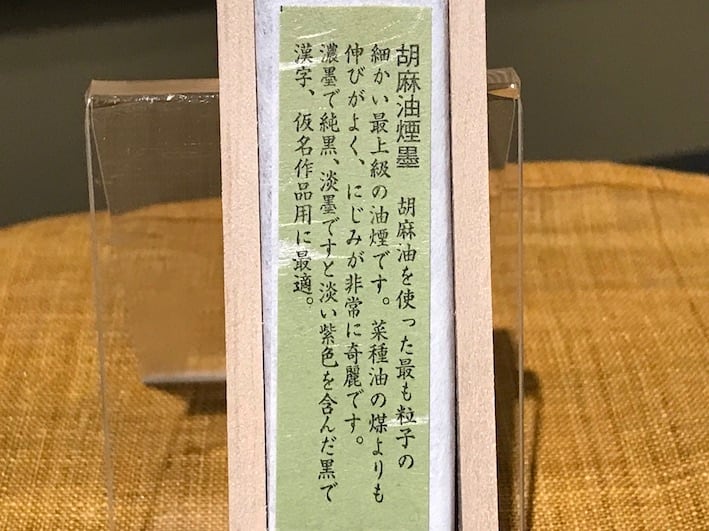 胡麻油煙墨　胡麻油を使った最も粒子の
細かい最上級の油煙です。菜種油の煤よりも
伸びがよく、にじみが非常に奇麗です。
濃墨で純黒、淡墨ですと淡い紫色を含んだ黒で
漢字、仮名作品用に最適。